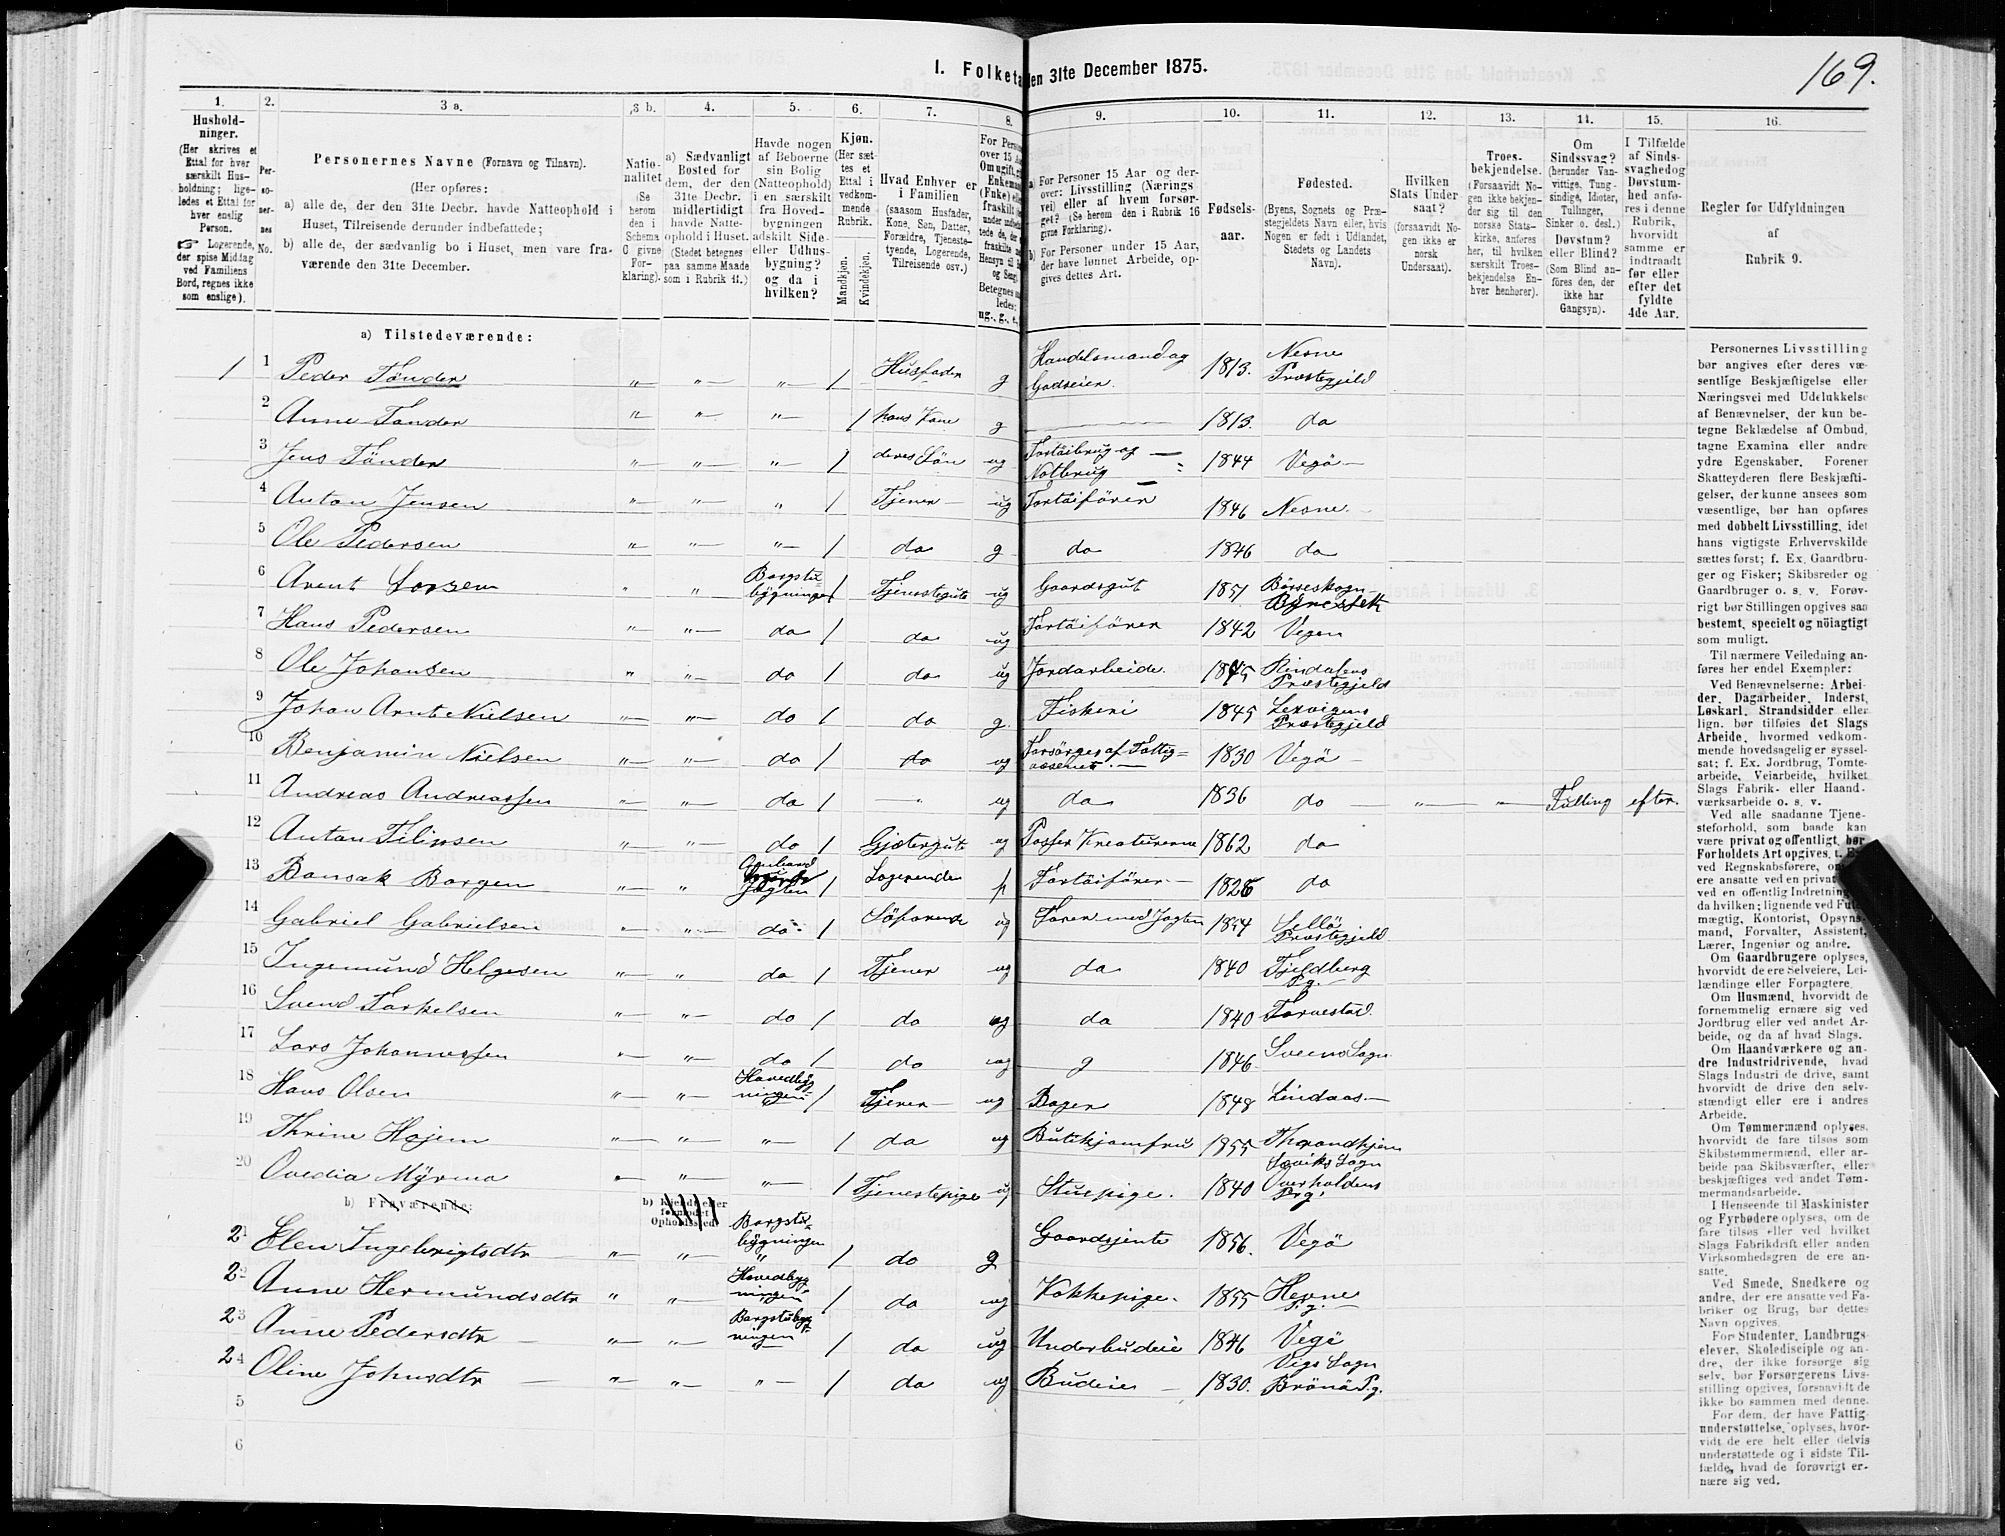 169.
1. Folketa den 31te December 1875.
1. 2. 3 a. 3 b. 4. 5. 6. 7. 8. 9. 10. 11. 12. 13. 14. 15. 16.
Hushold-
ninger.
(Her skrives et
Ettal for hver
særskilt Hus-
holdning; lige-
ledes et Ettal for
hver enslig
Person.
☞ Logerende,
der spise Middag
ved Familiens
Bord, regnes ikke
som enslige).
Per-
so-
ner-
nes
No.
Personernes Navne (Fornavn og Tilnavn).
(Her opføres:
a) alle de, der den 31te Decbr. havde Natteophold i
Huset, Tilreisende derunder indbefattede;
b) alle de, der sædvanlig bo i Huset, men vare fra-
værende den 31te December.
Natio-
nalitet
(Se
herom
den i
Schema
O givne
For-
klaring).
a) Sædvanligt
Bosted for
dem, der den
31te Decbr.
midlertidigt
havde Natte-
ophold i Huset.
(Stedet betegnes
paa samme Maade
som i Rubrik 11.)
Havde nogen
af Beboerne
sin Bolig
(Natteophold)
i en særskilt
fra Hoved-
bygningen
adskilt Side-
eller Udhus-
bygning?
og da i
hvilken?
Kjøn.
(Her sæt-
tes et
Ettal i
vedkom-
mende
Rubrik.
Mandkjøn.
Kvindekjøn.
Hvad Enhver er
i Familien
(saasom Husfader,
Kone, Søn, Datter,
Forældre, Tjeneste-
tyende, Logerende,
Tilreisende osv.)
For Person
over 15 Aa
Om ugift, g
Enkeman
(Fnke) e
fraskilt
a) For Personer 15 Aar og der-
over: Livsstilling (Nærings
vei) eller af hvem forsør-
get? (Se herom den i Rubrik 16
givne Forklaring).
b) For Personer under 15 Aar,
der have lønnet Arbeide, op-
gives dettes Art.
Fødsels-
aar.
Fødested.
(Byens, Sognets og Præ-
stegjeldets Navn eller, hvis
Nogen er født i Udlandet,
Stedets og Landets
Navn).
Hvilken
Stats Under
saat?
(forsaavidt No-
gen ikke er
norsk
Undersaat).
Troes-
bekjendelse.
(Forsaavidt No-
gen ikke bekjen-
der sig til den
norske Stats-
kirke, anføres
her, til hvilken
særskilt Troes-
bekjendelse En-
hver henhører).
Om
Sindssvag?
(herunder Van-
vittige, Tung-
sindige, Idioter,
Tullinger,
Sinker o. desl.)
Døvstum?
eller Blind?
(Som Blind an-
føres den, der
ikke har
Gangsyn).
I Tilfælde
af Sinds-
svaghed og
Døvstum-
hed anfø-
res i denne
Rubrik,
hvorvidt
samme er
indtraadt
før eller
efter det
fyldte
4de Aar.
Regler for Udfyldningen
af
Rubrik 9.
a) Tilstedeværende:
1 1 Peder Tønder " " " 1 Husfader g Handelsmand og Godseier. 1813. Nesne Præstegjeld
2 Anne Tønder " " " 1 hans Kone g 1813. do
3 Jens Tønder " " " 1 deres Søn ug Fartøibrug og Notbrug 1844 Vegø
4 Anton Jensen " " " 1 Tjener ug Fartøifører 1846 Nesne
5 Ole Pedersen " " " 1 do g do 1846 do
6 Arent Larsen " " Borgstu- bygningen 1 Tjenestegut ug Gaardsgut 1851 Børseskogn
7 Hans Pedersen " " do 1 do ug Fartøifører 1842 Vegen
8 Ole Johansen " " do 1 do ug Jordarbeide. 1845 Rindalens Præstegjeld
9 Johan Arnt Nielsen " " do 1 do g Fiskeri 1845 Lexvigens Præstegjeld
10 Benjamin Nielsen " " do 1 do ug Forsørges af Fattig- væsenet. 1830 Vegø
11 Andreas Andreassen " " do 1 " ug do 1836 do " " Tulling efter.
12 Anton Filipsen " " do 1 Gjætergut ug Passer Kreaturerne 1862 do
13 Bonsak Borgen " " Ombord Jagten 1 Logerende f Fartøifører 1826 do
14 Gabriel Gabrielsen " " do 1 Søfarende ug Farer med Jagten 1854 Sellø Præstegjeld
15 Ingemund Helgesen " " do 1 Tjener ug do 1840 Fjeldberg Pg.
16 Svend Torkelsen " " do 1 do ug do 1840 Torvestad.
17 Lars Johannessen " " do 1 do ug g 1846 Sveens Sogn
18 Hans Olsen " " Hovedbyg- ningen 1 Tjener ug Bager 1848 Lindaas
19 Thrine Hojem " " " 1 do ug Butikjomfru 1855 Throndhjem
20 Ovedia Myrmo " " " 1 Tjenestepige ug Stuepige. 1840 Overhaldens Prg.
b) Fraværende: b) Kjendt eller formodet Opholdssted
21 Elen Ingebrigtsdtr " " Borgstu- bygningen 1 do g Gaardsjente 1856. Vegø
22 Anne Hermundsdtr " " Hovedbyg- ningen 1 do ug Kokkepige. 1855 Hevne P.g.
23 Anne Pedersdtr " " Borgstubyg- ningen 1 do ug Underbudeie 1846 Vegø
24 Oline Johnsdtr " " " 1 do ug Budeie 1830. Vigs Sogn Brønø P.g.
5
6
Personernes Livsstilling
bør angives efter deres væ-
sentlige Beskjæftigelse eller
Næringsvei med Udelukkelse
af Benævnelser, der kun be-
tegne Beklædelse af Ombud,
tagne Examina eller andre
ydre Egenskaber. Forener
Skatteyderen flere Beskjæfti-
gelser, der kunne ansees som
væsentlige, bør han opføres
med dobbelt Livsstilling, idet
hans vigtigste Erhvervskilde
sættes først; f. Ex. Gaardbru-
ger og Fisker; Skibsreder og
Gaardbruger o. s. v. Forøv-
rigt bør Stillingen opgives saa
bestemt, specielt og nöiagtigt
som muligt.
Til nærmere Veiledning an-
føres her endel Exempler:
Ved Benævnelserne: Arbei-
der, Dagarbeider, Inderst,
Løskarl, Strandsidder eller
lign. bør tilføies det Slags
Arbeide, hvormed vedkom-
mende hovedsagelig er syssel-
sat; f. Ex. Jordbrug, Tomte-
arbeide, Veiarbeide, hvilket
Slags Fabrik- eller Haand-
værksarbeide o. s. v.
Ved alle saadanne Tjene-
steforhold, som baade kan
være privat og offentlig, bør
Forholdets Art opgives,
ved Regnskabsførere,
ere ansatte ved en privat
ved en offentlig Indretning
da hvilken; lignende ved
mægtig, Kontorist, Opsyns-
mand, Forvalter, Assistent,
Lærer, Ingeniør og andre.
Om Gaardbrugere oplyses,
hvorvidt de ere Selveiere, Lei-
lændinge eller Forpagtere.
Om Husmænd, hvorvidt de
fornemmelig ernære sig ved
Jordbrug eller ved andet Ar-
beide, og da af hvad Slags.
Om Haandværkere og an-
dre Industridrivende, hvad
Slags Industri de drive, samt
hvorvidt de drive den selv-
stændigt eller ere i andres
Arbeide.
Om Tømmermænd oplyses,
hvorvidt de fare tilsøs som
Skibstømmermænd, eller ar-
beide paa Skibsværfter, eller
beskjæftiges ved andet Tøm-
mermandsarbeide.
I Henseende til Maskinister
og Fyrbødere oplyses, om de
fare tilsøs eller ved hvilket
Slags Fabrikdrift eller anden
Virksomhedsgren de ere an-
satte.
Ved Smede, Snedkere og
andre, der ere ansatte ved Fa-
briker og Brug, bør dettes
Navn opgives.
For Studenter, Landbrugs-
elever, Skoledisciple og an-
dre, der ikke forsørge sig
selv, bør Forsørgerens Livs-
stilling opgives, forsaavidt de
ikke bo sammen med denne.
For dem, der have Fattig-
understøttelse, oplyses, hvor-
vidt de ere helt eller delvis
understøttede og i sidste Til-
fælde, hvad de forøvrigt er-
nære sig ved.